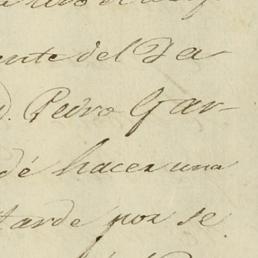 ente del Ja
D. Pedro Gar-
dé hacer una
tarde por se